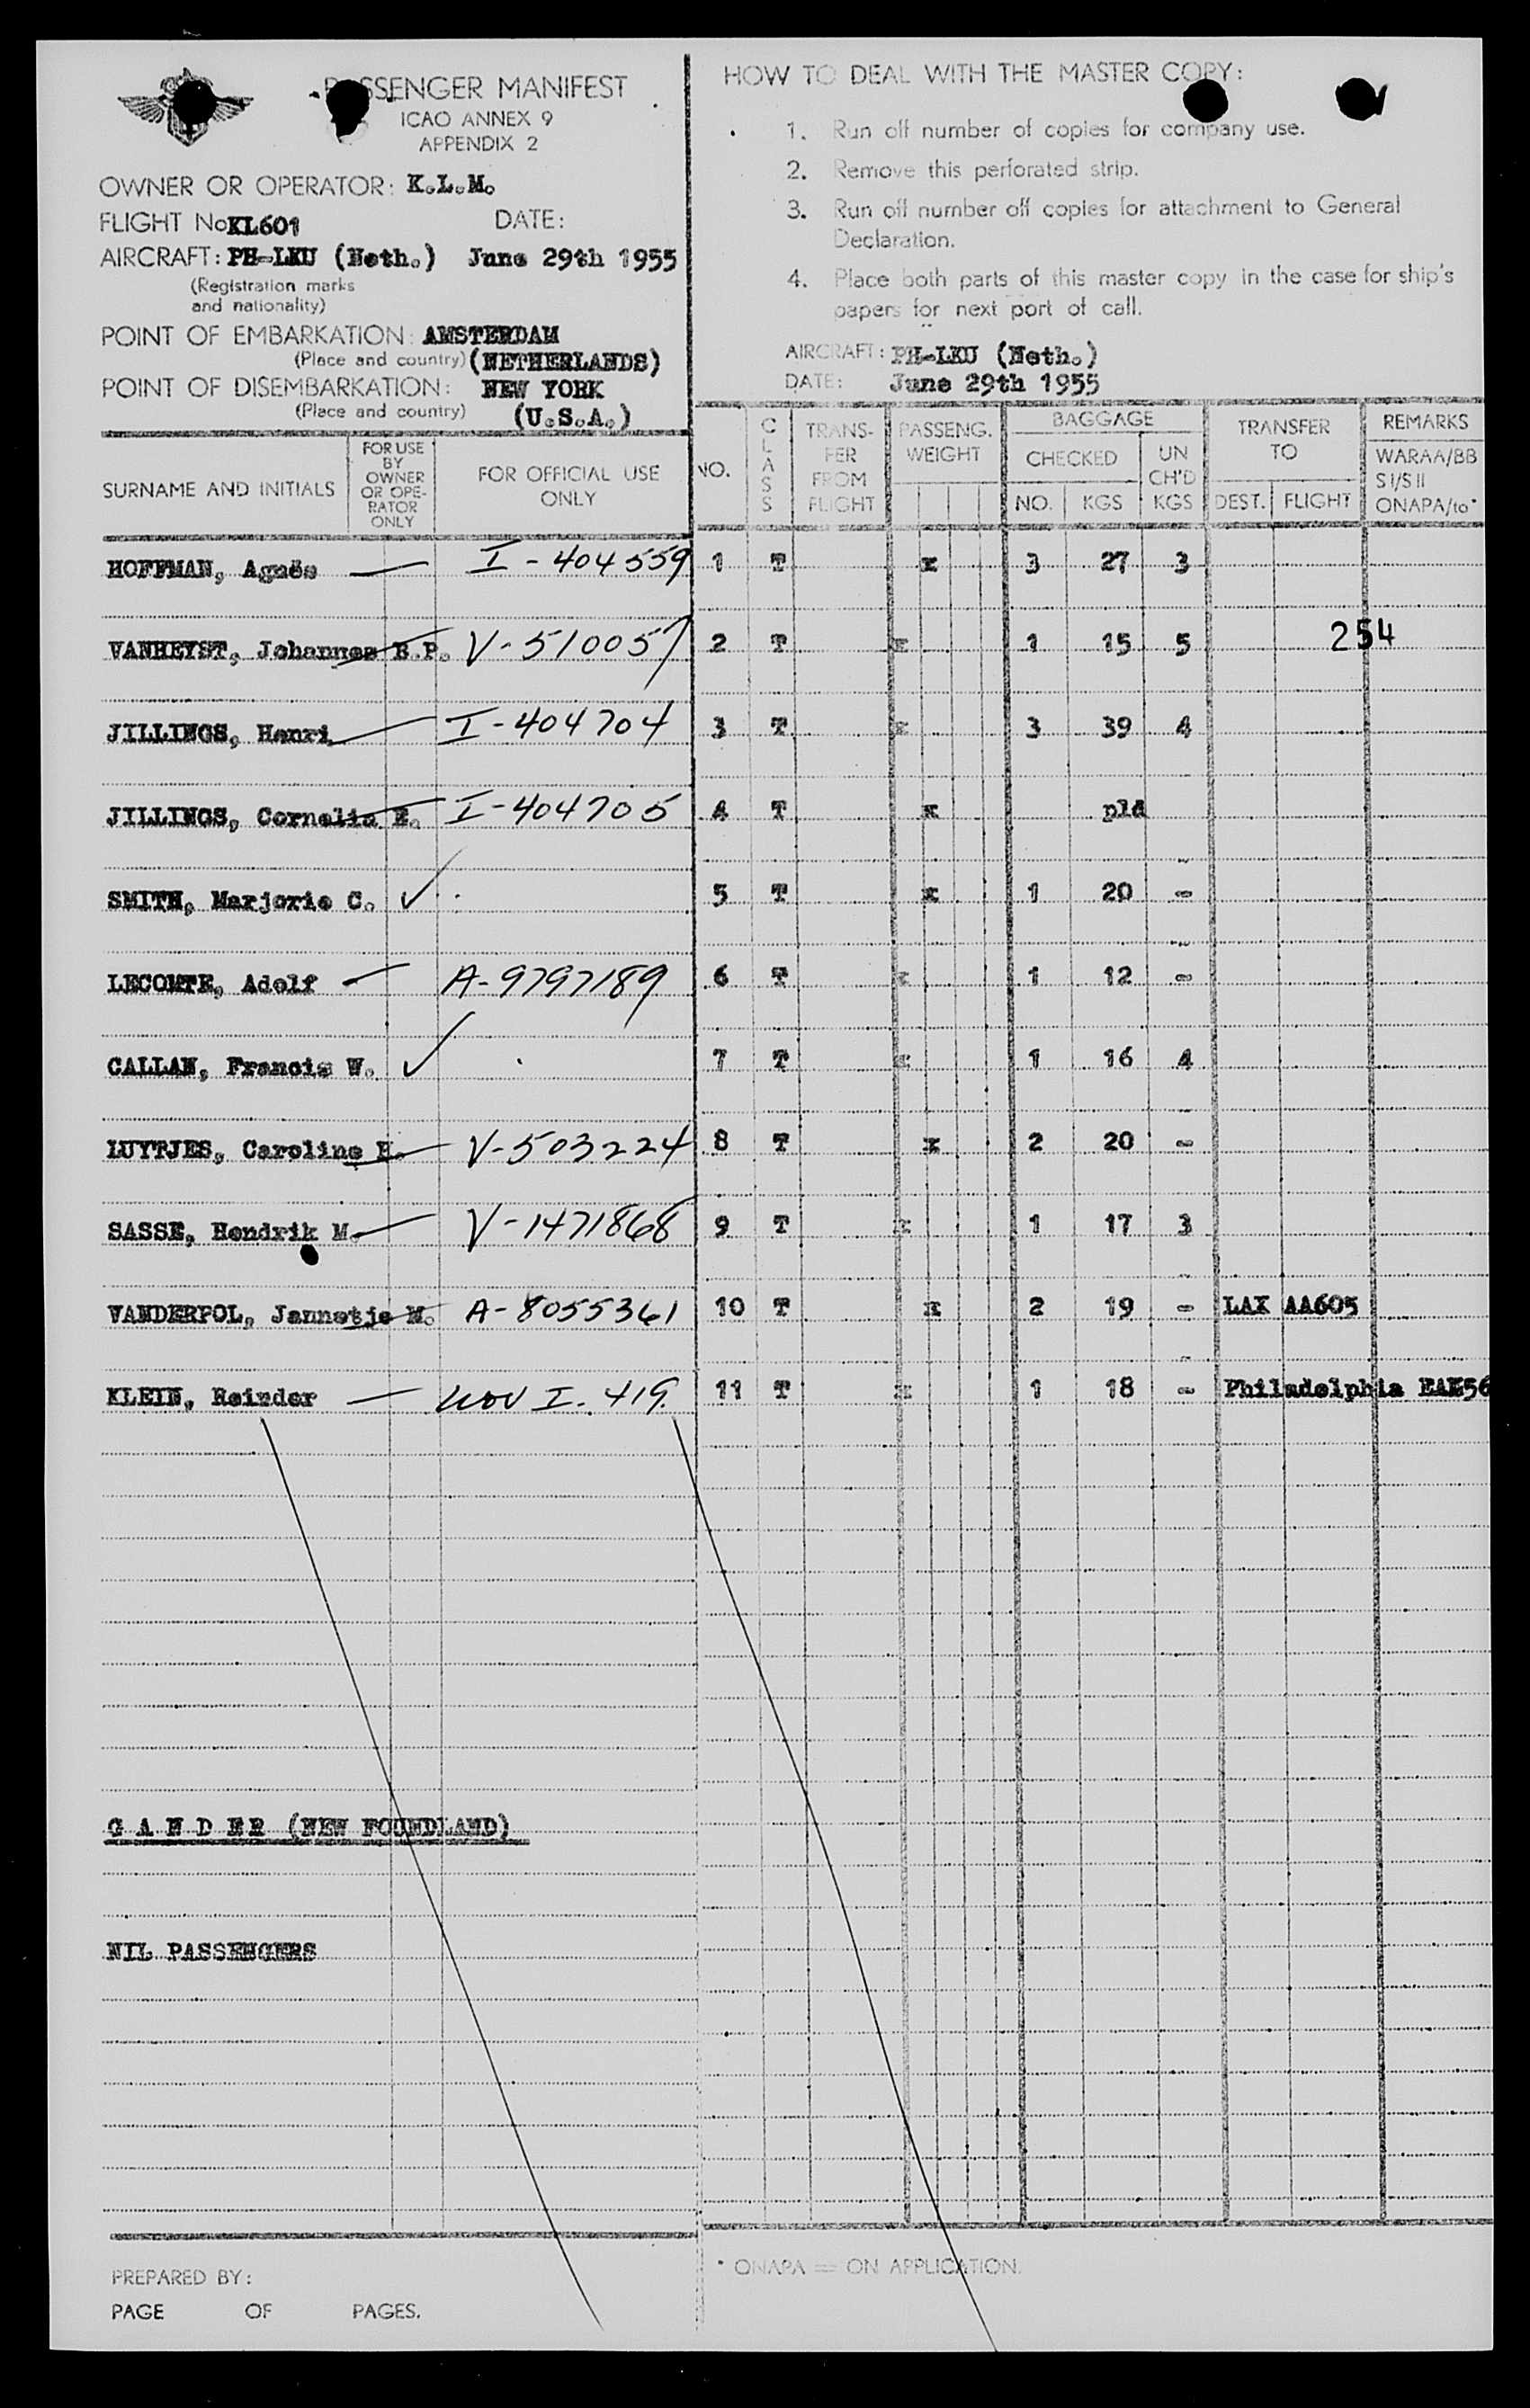 PASSENGER MANIFEST
ICAO ANNEX 9
APPENDIX 2
OWNER OR OPERATOR: K.L.M.
FLIGHT No KL601 DATE:
AIRCRAFT: PH-LKU (Neth.) June 29th 1955
(Registration marks
and nationality)
POINT OF EMBARKATION: AMSTERDAM
(Place and country) (NETHERLANDS)
POINT OF DISEMBARKATION: NEW YORK
(Place and country) (U.S.A.)
HOW TO DEAL WITH THE MASTER COPY:
1. Run off number of copies for company use.
2. Remove this perforated strip.
3. Run off number off copies for attachment to General
Declaration.
4. Place both parts of this master copy in the case for ship's
papers for next port of call.
AIRCRAFT: PH-LKU (Neth.)
DATE: June 29th 1955
SURNAME AND INITIALS
FOR USE
BY
OWNER
OR OPE-
RATOR
ONLY
FOR OFFICIAL USE
ONLY
NO.
CLASS
TRANS-
FER
FROM
FLIGHT
PASSENG.
WEIGHT
BAGGAGE
CHECKED
NO. KGS
UN
CH'D
KGS
TRANSFER
TO
DEST. FLIGHT
REMARKS
WARAA/BB
S I/S II
ONAPA/to*
HOFFMAN, Agnès — I-404559 1 T x 3 27 3
VANHEYST, Johannes B.P. V-510057 2 T x 1 15 5 254
JILLINGS, Henri I-404704 3 T x 3 39 4
JILLINGS, Cornelia E. I-404705 4 T x pld
SMITH, Marjorie C. ✓ 5 T x 1 20 -
LECOMTE, Adolf — A-9797189 6 T x 1 12 -
CALLAN, Francis W. ✓ 7 T x 1 16 4
LUYTJES, Caroline H. V-503224 8 T x 2 20 -
SASSE, Hendrik M. V-1471868 9 T x 1 17 3
VANDERPOL, Jannetje M. A-8055361 10 T x 2 19 - LAX AA605
KLEIN, Reinder — NOV I. 419. 11 T x 1 18 - Philadelphia EAE56
G A N D E R (NEW FOUNDLAND)
NIL PASSENGERS
PREPARED BY:
PAGE OF PAGES.
* ONAPA = ON APPLICATION.